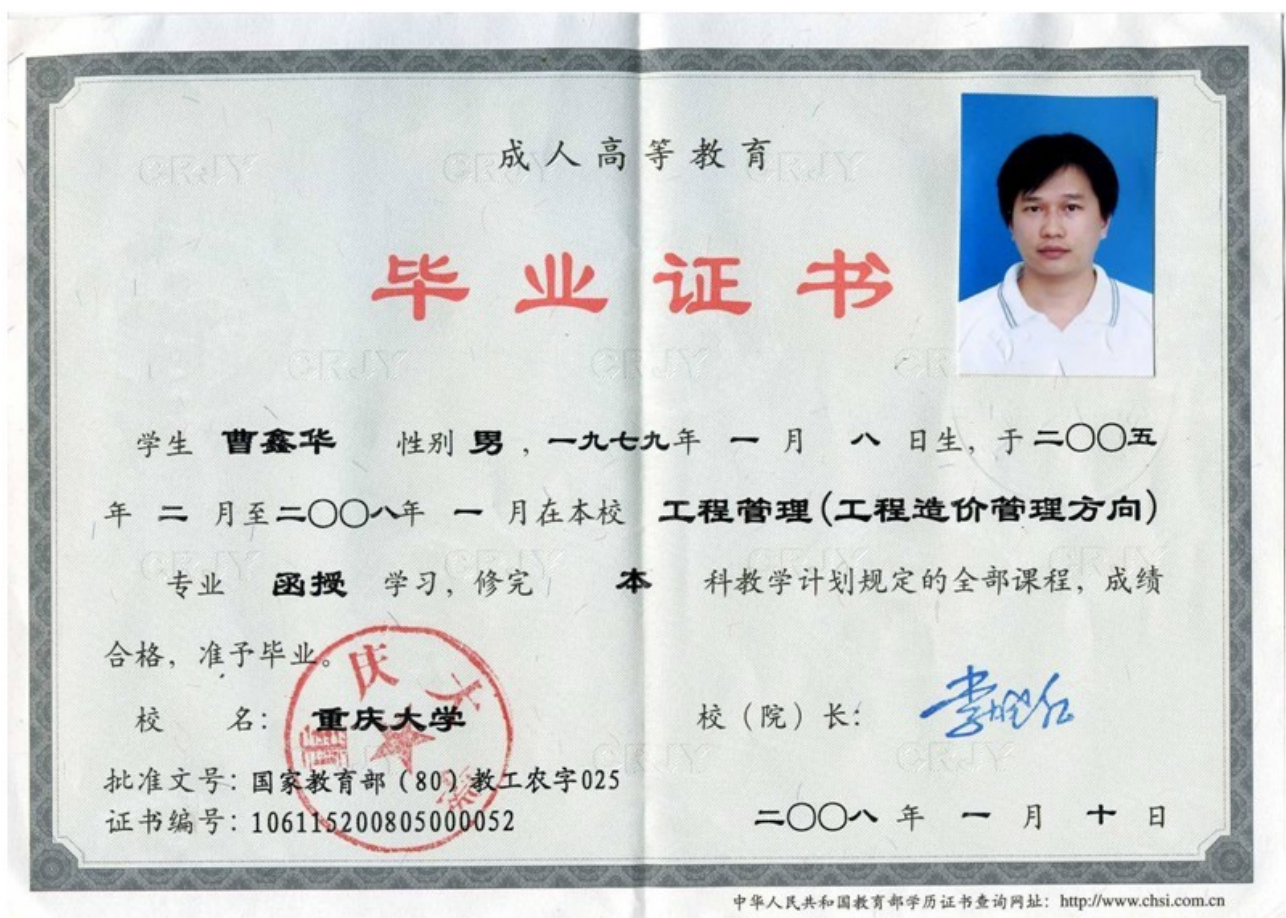 成人高等教育
毕业证书
学生 曹鑫华 性别 男，一九七九年 一 月 八 日生，于 二〇〇五
年 二 月至二〇〇八年 一 月在本校 工程管理（工程造价管理方向）
专业 函授 学习，修完 本 科教学计划规定的全部课程，成绩
合格，准予毕业。
校 名：重庆大学
校（院）长：
批准文号：国家教育部（80）教工农字025
证书编号：106115200805000052
二〇〇八 年 一 月 十 日
中华人民共和国教育部学历证书查询网址：http://www.chsi.com.cn
CRJY